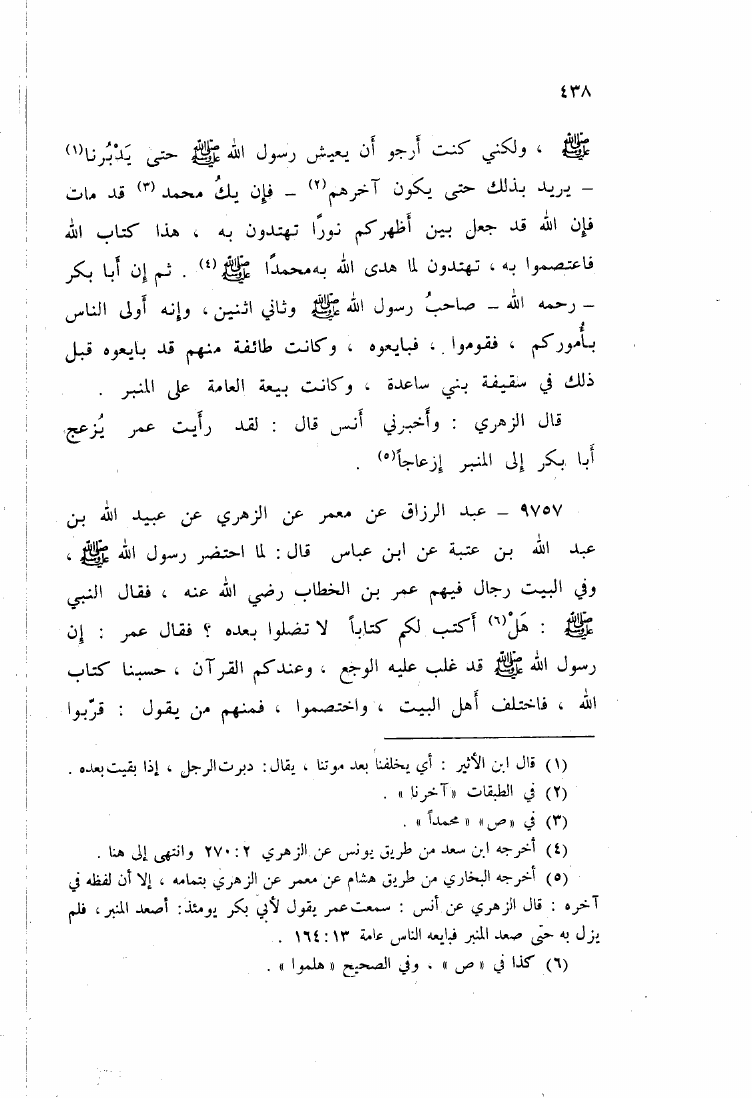 ٤٣٨
ﷺ ، ولكني كنت أرجو أن يعيش رسول الله ﷺ حتى يَدْبُرنا(١)
– يريد بذلك حتى يكون آخرهم(٢) – فإن يكُ محمد(٣) قد مات
فإن الله قد جعل بين أظهركم نورًا تهتدون به ، هذا كتاب الله
فاعتصموا به ، تهتدون لما هدى الله به محمدًا ﷺ(٤) . ثم إن أبا بكر
– رحمه الله – صاحبُ رسول الله ﷺ وثاني اثنين ، وإنه أولى الناس
بأُموركم ، فقوموا ، فبايعوه ، وكانت طائفة منهم قد بايعوه قبل
ذلك في سقيفة بني ساعدة ، وكانت بيعة العامة على المنبر .
قال الزهري : وأخبرني أنس قال : لقد رأيت عمر يُزعج
أبا بكر إلى المنبر إزعاجاً(٥) .
٩٧٥٧ – عبد الرزاق عن معمر عن الزهري عن عبيد الله بن
عبد الله بن عتبة عن ابن عباس قال : لما احتضر رسول الله ﷺ ،
وفي البيت رجال فيهم عمر بن الخطاب رضي الله عنه ، فقال النبي
ﷺ : هَلْ(٦) أكتب لكم كتاباً لا تضلوا بعده ؟ فقال عمر : إن
رسول الله ﷺ قد غلب عليه الوجع ، وعندكم القرآن ، حسبنا كتاب
الله ، فاختلف أهل البيت ، واختصموا ، فمنهم من يقول : قرّبوا
(١) قال ابن الأثير : أي يخلفنا بعد موتنا ، يقال : دبرت الرجل ، إذا بقيت بعده .
(٢) في الطبقات «آخرنا» .
(٣) في «ص» «محمداً» .
(٤) أخرجه ابن سعد من طريق يونس عن الزهري ٢ : ٢٧٠ وانتهى إلى هنا .
(٥) أخرجه البخاري من طريق هشام عن معمر عن الزهري بتمامه ، إلا أن لفظه في
آخره : قال الزهري عن أنس : سمعت عمر يقول لأبي بكر يومئذ : أصعد المنبر ، فلم
يزل به حتى صعد المنبر فبايعه الناس عامة ١٣ : ١٦٤ .
(٦) كذا في «ص» . وفي الصحيح «هلموا» .